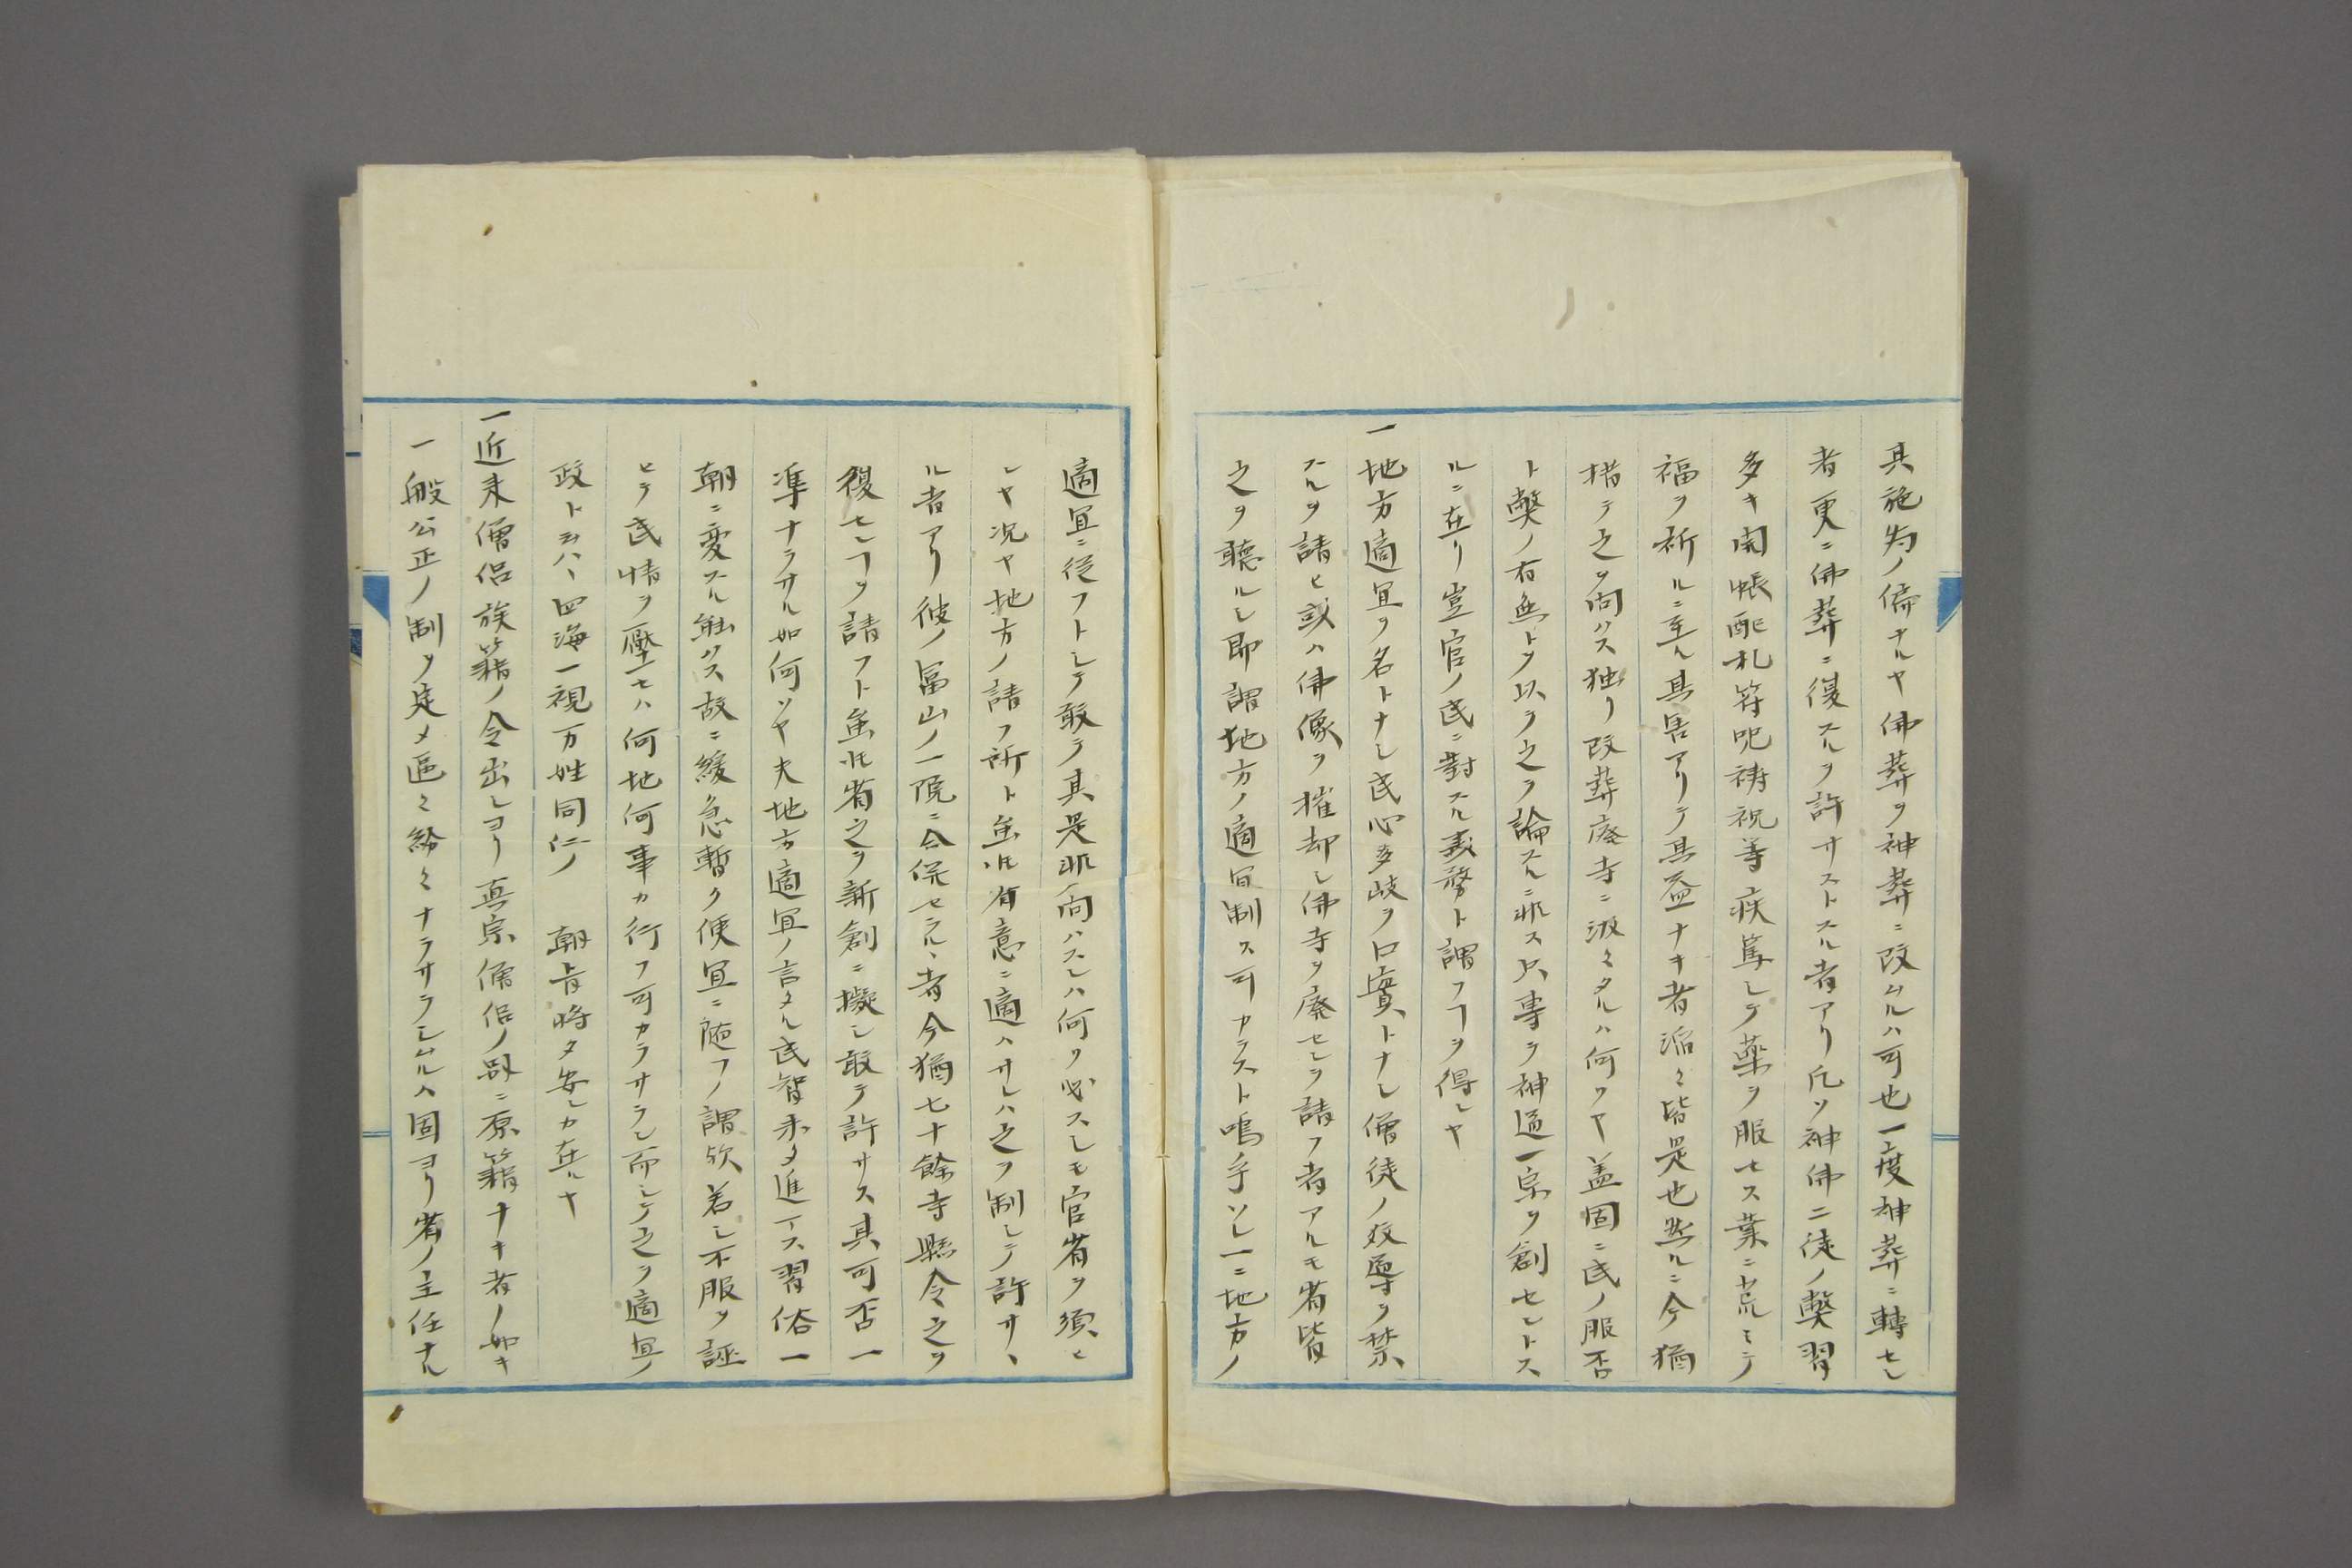 其施為ノ偏ナルヤ佛葬ヲ神葬ニ改ムルハ可也一度神葬ニ轉セシ
者更ニ佛葬ニ復スルヲ許サストスル者アリ凡ソ神佛二徒ノ弊習
多キ開帳配札符呪祷祝等疾篤シテ薬ヲ服セス業ニ荒ミテ
福ヲ祈ルニ至ル其害アリテ其益ナキ者滔々皆是也然ルニ今猶
措テ之ヲ問ハス独リ改葬廃寺ニ汲々タルハ何ソヤ盖固ニ民ノ服否
ト弊ノ有無トヲ以テ之ヲ論スルニ非ス只専ラ神道一宗ヲ創セントス
ルニ在リ豈官ノ民ニ對スル義務ト謂フヿヲ得ンヤ
一地方適宜ヲ名トナシ民心多岐ヲ口實トナシ僧徒ノ教導ヲ禁
スルヲ請ヒ或ハ佛像ヲ摧却シ佛寺ヲ廃センヲ請フ者アルモ省皆
之ヲ聴ルシ即謂地方ノ適宜制ス可ヤラスト嗚乎ソレ一ニ地方ノ
適宜ニ従フトシテ敢テ其是非ヲ問ハスンハ何ヲ必スシモ官省ヲ須ヒ
ンヤ况ヤ地方ノ請フ所ト𪜈省意ニ適ハサレハ之ヲ制シテ許サヽ
ル者アリ彼ノ冨山ノ一院ニ合併セラルヽ者今猶七十餘寺縣令之ヲ
復センヿヲ請フト𪜈省之ヲ新創ニ擬シ敢テ許サス其可否一
準ナラサル如何ソヤ夫地方適宜ノ言タル民智未タ進マス習俗一
朝ニ変スル能ハス故ニ緩急暫ク便宜ニ随フノ謂欤若シ不服ヲ誣
ヒテ民情ヲ壓セハ何地何事カ行フ可カラサラン而シテ之ヲ適宜ノ
政ト云ハヽ四海一視万姓同仁ノ　朝旨将タ安シカ在ルヤ
一近来僧侶族籍ノ令出シヨリ真宗僧侶ノ別ニ原籍ナキ者ノ如キ
一般公正ノ制ヲ定メ區々紛々ナラサラシムルハ固ヨリ省ノ主任ナル